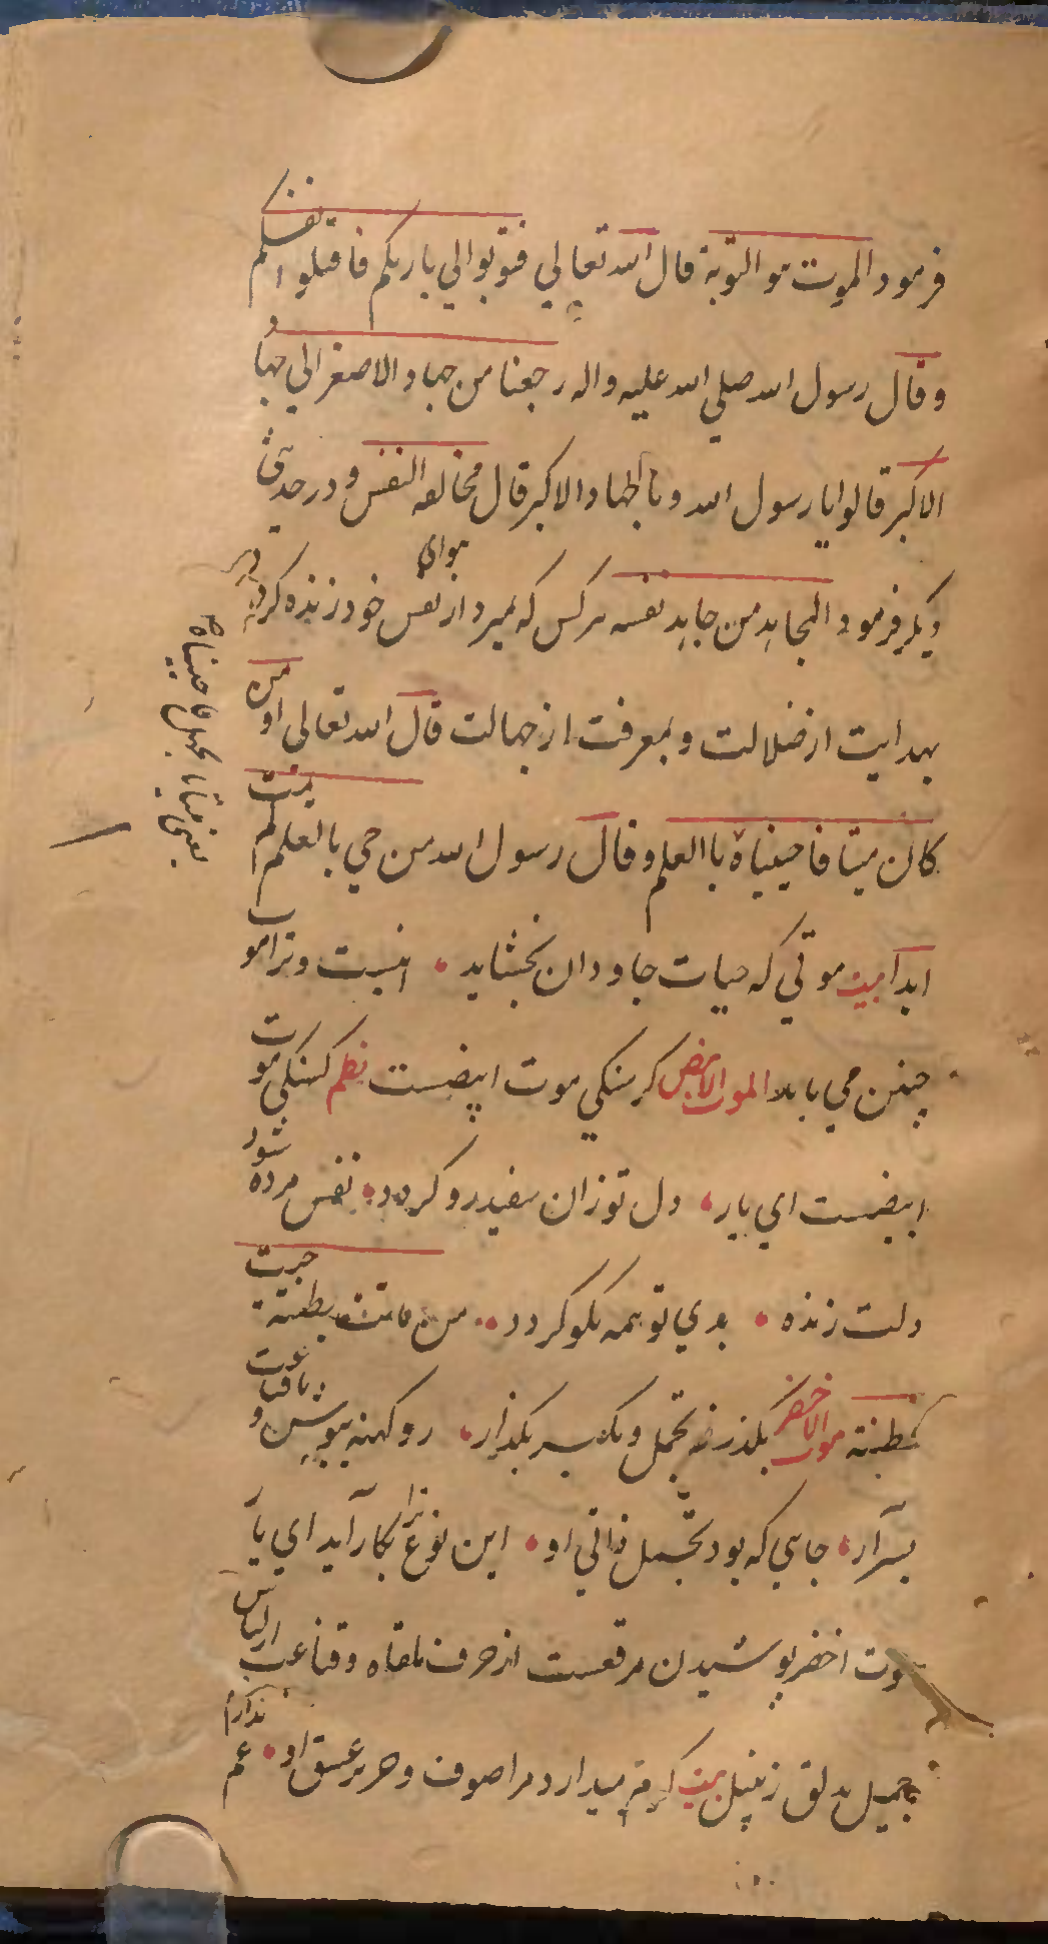 فرمود الموت هو التوبة قال الله تعالي فتوبوا الي باریکم فاقتلوا انفسکم
و قال رسول الله صلي الله علیه واله رجعنا من جهاد الاصغر الي جهاد
الاکبر قالوا یا رسول الله وما الجهاد الاکبر قال مخالفه النفس و در حدیثی
دیگر فرمود المجاهد من جاهد نفسه هرکس که بمیرد از هوای نفس خود زنده گردد
بهدایت از ضلالت و بمعرفت از جهالت قال الله تعالی او من
کان میتا فاحییناه باالعلم و قال رسول الله من حي بالعلم لم یمت
ابدا بیت موتي که حیات جاودان بخشاید اینست و ترا موت
چنین می باید الموت الابیض گرسنگي موت ابیضست نظم گسنگي موت
ابیضست اي یار دل تو زان سفید رو گردد نفس مرده شود
دلت زنده بدي تو همه نکو گردد من ماتت بطنته حییت
فطنته موت الاخضر بگذر ز تجمل و تکبر بگذار رو کهنه بپوش و با قناعت
بسر آر جایي که بود تجمل ذاتي او این نوع ترا بکار آید اي یار
موت اخضر پوشیدن مرقعست از خرق ملقاه و قناعت از لباس
جمیل بدلق زنبیل بیت گرم میدارد مرا صوف و حریر عشق او غم ندارم
یعنی میتا بالجهل فاحییناه